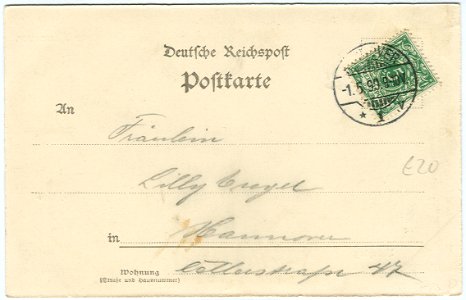 Deutsche Reichspost
Postkarte
An
Fräulein
Lilly
in Hannover
Wohnung
(Straße und Hausnummer)
47
-1.6.99
* 1 *
£20